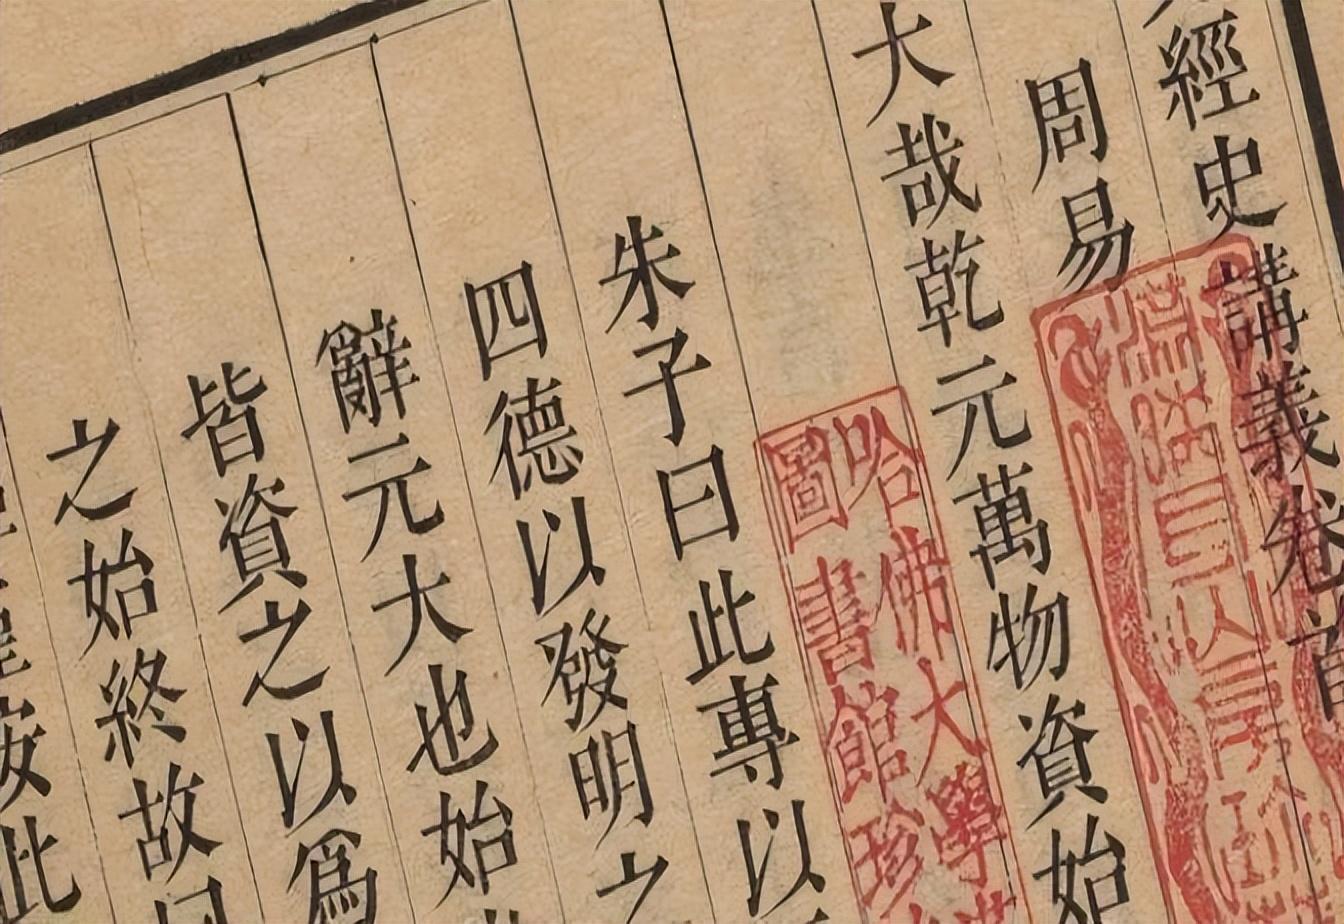 經史講義卷首
周易
大哉乾元萬物資始
朱子曰此專以
四德以發明之
辭元大也始
皆資之以爲
之始終故曰
按此
哈佛大學
圖書館珍